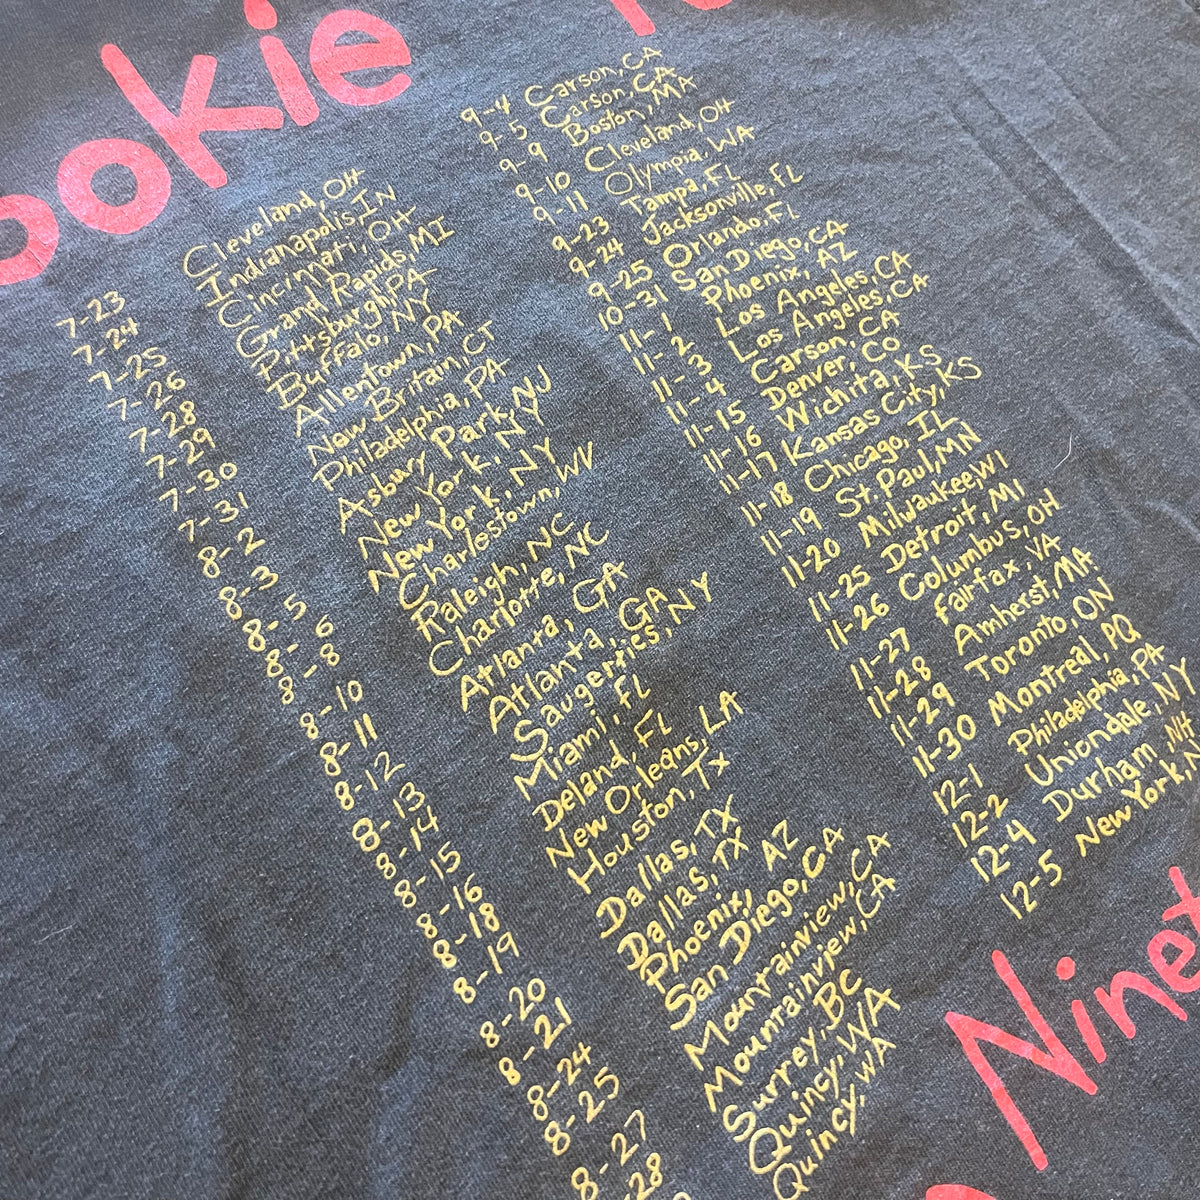 ookie
7-23 Cleveland, OH
7-24 Indianapolis, IN
7-25 Cincinnati, OH
7-26 Grand Rapids, MI
7-28 Pittsburgh, PA
7-29 Buffalo, NY
7-30 Allentown, PA
7-31 New Britain, CT
8-2 Philadelphia, PA
8-3 Asbury Park, NJ
8-5 New York, NY
8-6 New York, NY
8-8 Charlestown, WV
8-10 Raleigh, NC
8-11 Charlotte, NC
8-12 Atlanta, GA
8-13 Atlanta, GA
8-14 Saugerties, NY
8-15 Miami, FL
8-16 Deland, FL
8-18 New Orleans, LA
8-19 Houston, TX
8-20 Dallas, TX
8-21 Dallas, TX
8-24 Phoenix, AZ
8-25 San Diego, CA
8-27 Mountainview, CA
-28 Mountainview, CA
Surrey, BC
Quincy, WA
Quincy, WA
9-4 Carson, CA
9-5 Carson, CA
9-9 Boston, MA
9-10 Cleveland, OH
9-11 Olympia, WA
9-23 Tampa, FL
9-24 Jacksonville, FL
9-25 Orlando, FL
10-31 San Diego, CA
11-1 Phoenix, AZ
11-2 Los Angeles, CA
11-3 Los Angeles, CA
11-4 Carson, CA
11-15 Denver, CO
11-16 Wichita, KS
11-17 Kansas City, KS
11-18 Chicago, IL
11-19 St. Paul, MN
11-20 Milwaukee, WI
11-25 Detroit, MI
11-26 Columbus, OH
11-27 Fairfax, VA
11-28 Amherst, MA
11-29 Toronto, ON
11-30 Montreal, PQ
12-1 Philadelphia, PA
12-2 Uniondale, NY
12-4 Durham, NH
12-5 New York, N
Ninet